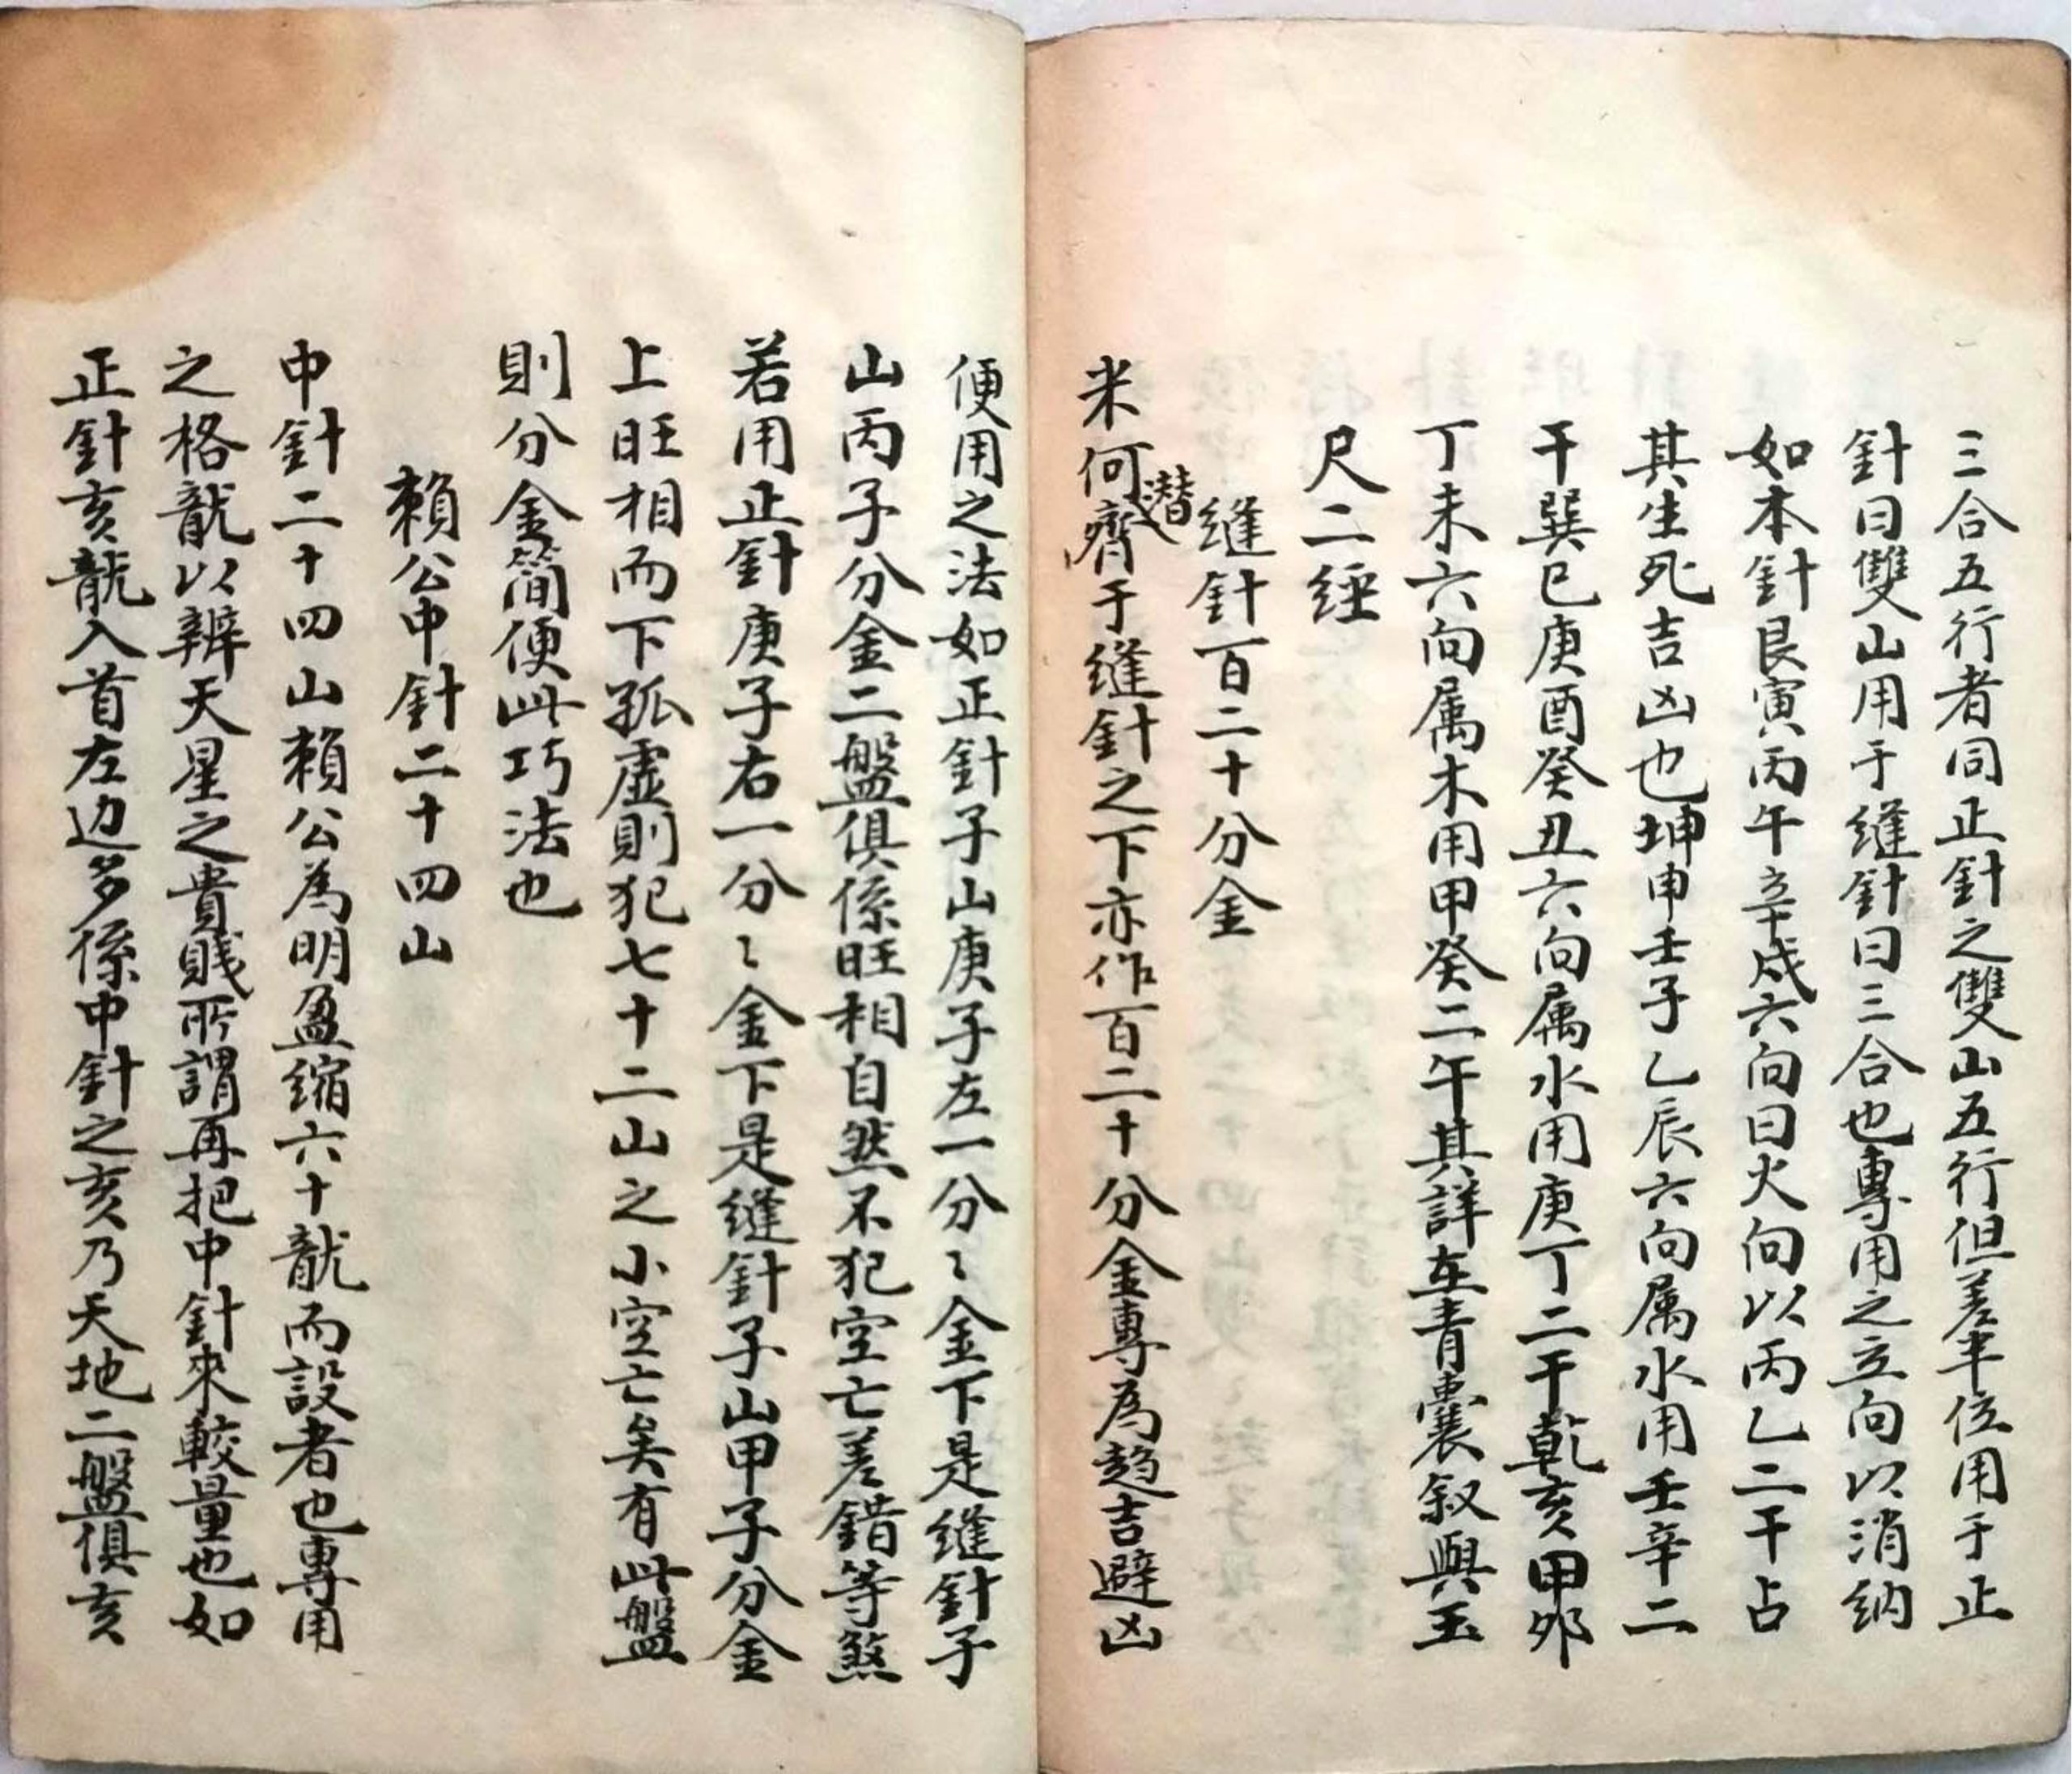 三合五行者同正針之雙山五行但差半位用于正
針曰雙山用于缝針曰三合也專用之立向以消納
如本針艮寅丙午辛戍六向曰火向以丙乙二干占
其生死吉凶也坤申壬子乙辰六向属水用壬辛二
干巽巳庚酉癸丑六向属水用庚丁二干乾亥甲夘
丁未六向属木用甲癸二午其詳在青囊叙與玉
尺二經
缝針百二十分金
米何潜齊于缝針之下亦作百二十分金專為趋吉避凶
便用之法如正針子山庚子左一分〻金下是缝針子
山丙子分金二盤俱係旺相自然不犯空亡差錯等煞
若用正針庚子右一分〻金下是缝針子山甲子分金
上旺相而下孤虚則犯七十二山之小空亡矣有此盤
則分金简便此巧法也
賴公中針二十四山
中針二十四山賴公為明盈缩六十龍而設者也專用
之格龍以辨天星之貴賎所謂再把中針來較量也如
正針亥龍入首左边多係中針之亥乃天地二盤俱亥